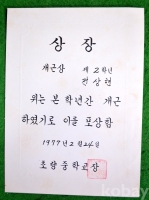 상장
개근상 제2학년
전상현
위는 본 학년간 개근
하였기로 이를 포상함
1977년 2월 24일
초량중학교장
kobay